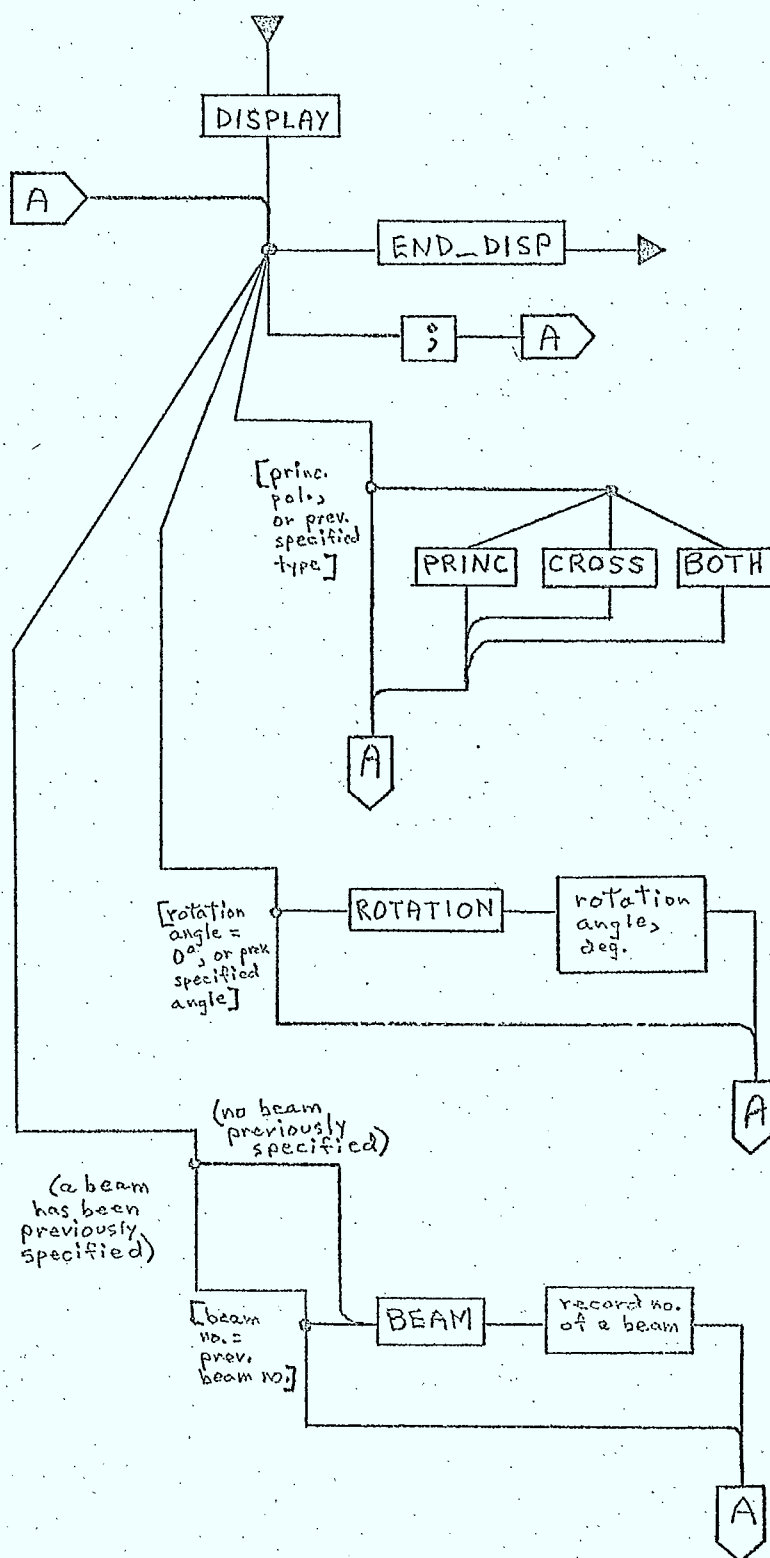 DISPLAY
A
END_DISP
;
A
[princ.
pol.,
or prev.
specified
type]
PRINC
CROSS
BOTH
A
[rotation
angle =
0°, or prev.
specified
angle]
ROTATION
rotation
angle,
deg.
A
(no beam
previously
specified)
(a beam
has been
previously
specified)
[beam
no. =
prev.
beam no.]
BEAM
record no.
of a beam
A